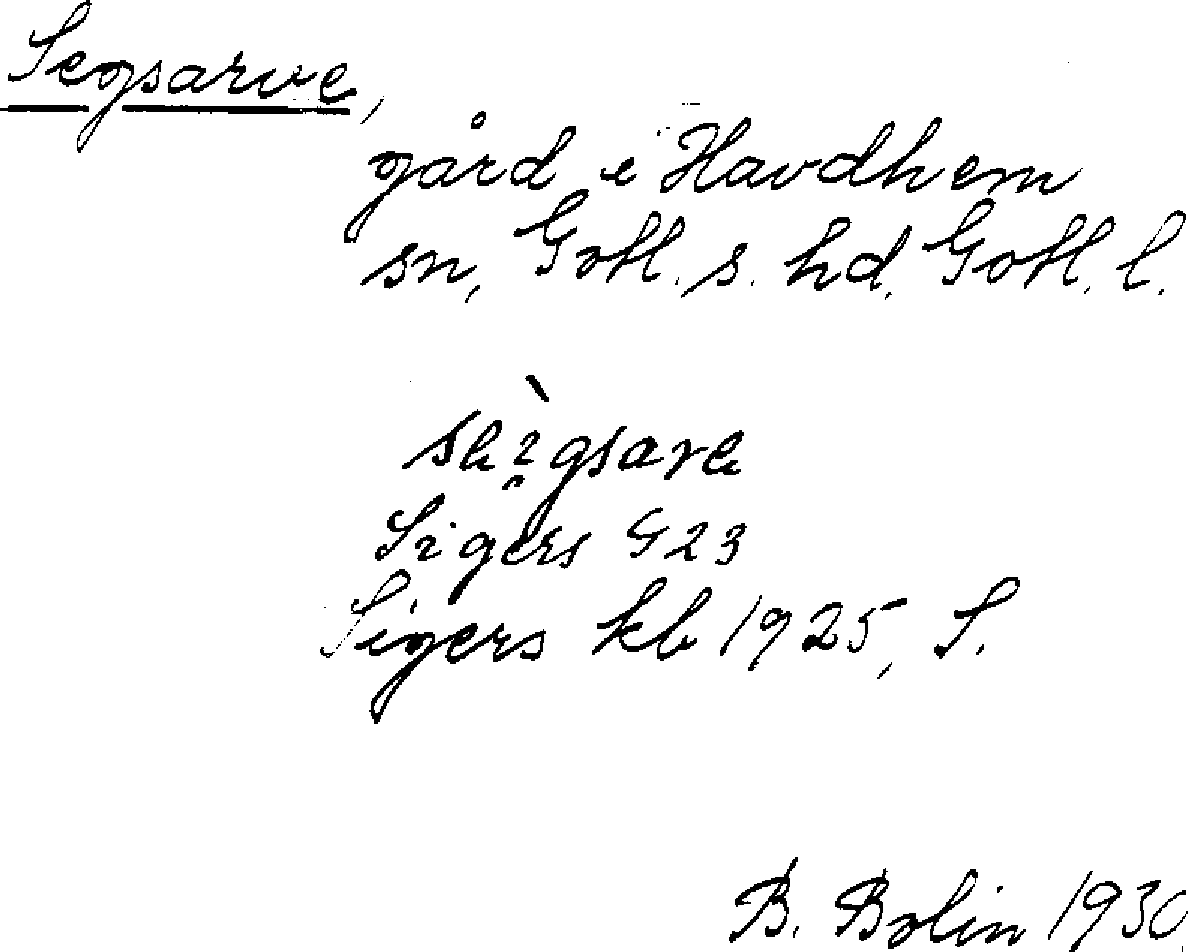 Segsarve,
gård i Havdhem
sn, Gotl. s. hd. Gotl. l.
Sigers G 23
Sigers kb 1925, S.
B. Bolin 1930